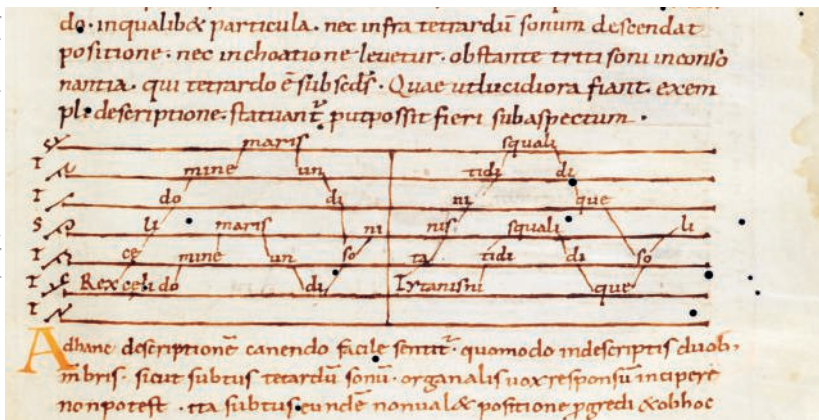 do· inqualib& particula· nec infra tetrardū sonum descendat
positione· nec inchoatione leuetur· obstante triti soni inconso
nantia· qui tetrardo ē subsedꝰ· Quae utlucidiora fiant· exem
pli descriptione· statuant̄ putpossit fieri subaspectum·
maris squali
T mine un tidi di
T do di ni que
S li maris ni nis squali li
T ce mine un so ta tidi di so
T Rex celi do di Tytanisni que
T
Adhanc descriptionē canendo facile sentit̄· quomodo indescriptis duob;
mbris· sicut subtus tetardū sonū· organalis uox responsum incipere
nonpotest· ita subtus eundē nonual& positione ꝓgredi &obhoc